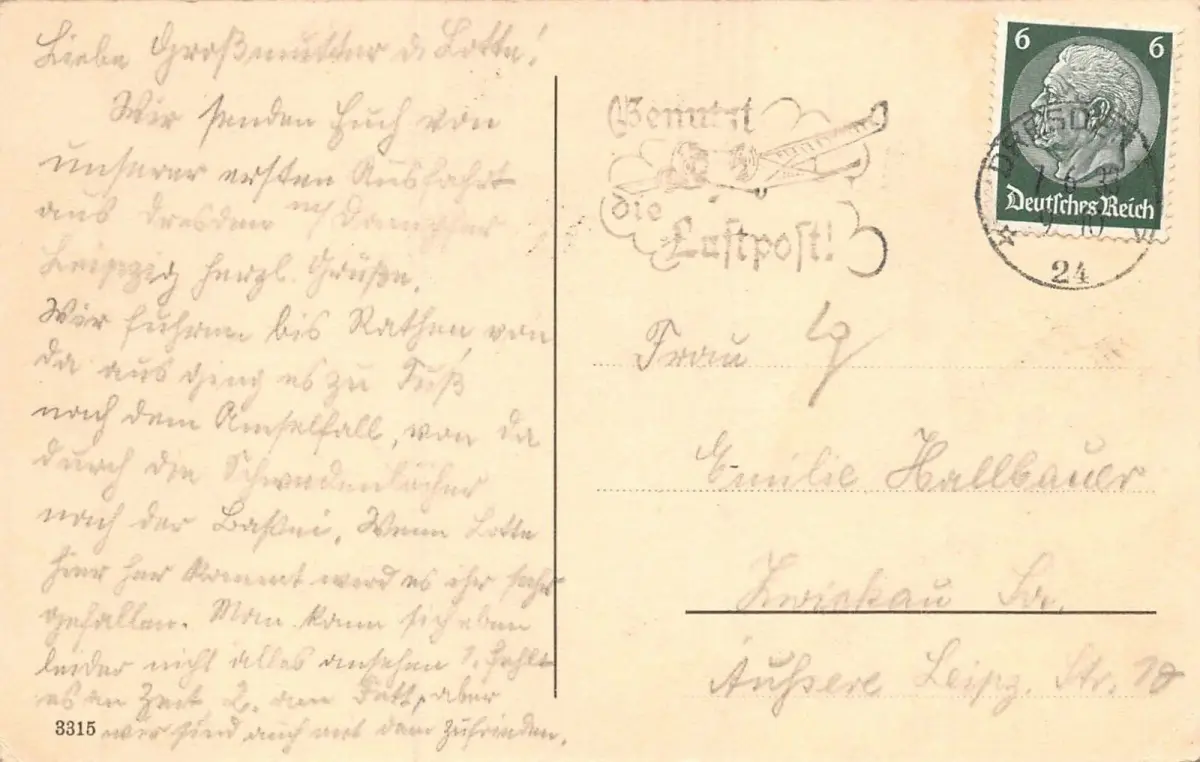 Liebe Großmutter u. Lotte!
Wir senden Euch von
unserer ersten Ausfahrt
aus Dresden
Leipzig herzl. Grüße.
Wir fuhren bis Rathen von
da aus ging es zu Fuß
nach dem Amselfall, von da
durch die Schwedenlöcher
nach der Bastei. Wenn Lotte
hier her kommt wird es ihr sehr
gefallen. Man kann sich eben
leider nicht alles ansehen 1. fehlt
es an Zeit 2. am Fett, aber
wir sind auch mit dem zufrieden.
3315
Benutzt
die
Luftpost!
6 6
Deutsches Reich
DRESDEN
24
Frau
Emilie Hallbauer
Zwickau Sa.
Äußere Leipz. Str.